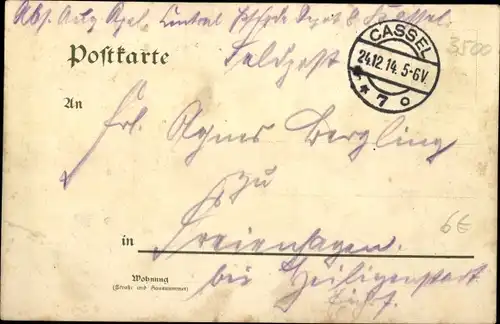 Abs. Aug Apel. Central
Postkarte
Feldpost
CASSEL
24.12.14. 5-6V.
* * 7 o
3500
An
Frl. Agnes Bergling
zu
6€
in Freienhagen.
Wohnung
(Straße und Hausnummer)
bei Heiligenstadt
Eichsf.